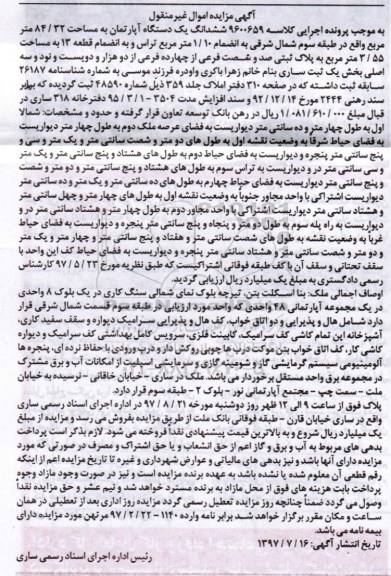 آگهی مزایده اموال غیر منقول
به موجب پرونده اجرایی کلاسه ۹۶۰۰۶۵۹ ششدانگ یک دستگاه آپارتمان به مساحت ۸۴/۳۲ متر
مربع واقع در طبقه سوم شمال شرقی به انضمام ۱/۱۰ متر مربع تراس و به انضمام قطعه ۱۳ به مساحت
۳/۵۵ متر مربع به پلاک ثبتی صد و شصت فرعی از چهارده فرعی از دو هزار و دویست و نود و سه
اصلی بخش یک ثبت ساری بنام خانم زهرا باکری واودره فرزند موسی به شماره شناسنامه ۲۶۱۸۷
سابقه ثبت داشته که در صفحه ۳۱۰ دفتر املاک جلد ۳۵۹ ذیل شماره ۴۸۵۹۰ ثبت گردیده که برابر
سند رهنی ۲۴۴۴ مورخ ۹۲/۱۲/۱۴ و سند افزایش مدت ۳۵۰۴ - ۹۵/۳/۱ دفترخانه ۳۱۸ ساری در
قبال مبلغ ۱/۰۸۱/۶۱۰/۰۰۰ ریال در رهن بانک توسعه تعاون قرار گرفته و حدود و مشخصات: شمالا
اول به طول چهار متر و ده سانتی متر دیواریست به فضای عرصه ملک دوم به طول چهار متر دیواریست
به فضای حیاط شرقا به وضعیت نقشه اول به طول های دو متر و شصت سانتی متر و یک متر و سی و
پنج سانتی متر پنجره و دیواریست به فضای حیاط دوم به طول های هشتاد و پنج سانتی متر و یک متر
و سی سانتی متر در و دیواریست به تراس سوم به طول های هشتاد و پنج سانتی متر و دو متر و شصت
و پنج سانتی متر دیواریست به فضای حیاط چهارم به طول های ده سانتی متر و یک متر و ده سانتی متر
دیواریست اشتراکی با واحد مجاور جنوباً به وضعیت نقشه اول به طول های چهار متر و چهل سانتی متر
و هشتاد سانتی متر دیواریست اشتراکی با واحد مجاور دوم به طول چهار متر و هشتاد سانتی متر در و
دیواریست به راه پله سوم به طول دو متر و پنجاه و پنج سانتی متر پنجره و دیواریست به فضای حیاط
غرباً به وضعیت نقشه به طول های شصت سانتی متر و هفتاد و پنج سانتی متر و چهار متر و یک متر
و شصت سانتی متر و هشتاد سانتی متر پنجره و دیواریست به فضای حیاط کف این واحد با
سقف تحتانی و سقف آن با کف طبقه فوقانی اشتراکیست که طبق نظریه مورخ ۹۷/۵/۲۳ کارشناس
رسمی دادگستری به مبلغ یک میلیارد ریال ارزیابی گردید.
اوصاف اجمالی ملک: بنا اسکلت بتن، تیرچه بلوک نمای شمالی سنگ کاری در یک بلوک ۸ واحدی
در یک مجموعه آپارتمانی ۴۸ واحدی که واحد مورد ارزیابی در طبقه سوم قسمت شمال شرقی قرار
دارد شامل هال و پذیرایی و دو اتاق خواب، کف هال و پذیرایی سرامیک دیواره و سقف سفید کاری،
آشپزخانه این تمام کاشی کف سرامیک، کابینت فلزی، سرویس کامل بهداشتی کف سرامیک و دیواره
کاشی کار، کف اتاق خواب بتن موکت درب ها چوبی روکش دار و درب ورودی با حفاظ نرده ای، پنجره ها
آلومینیومی سیستم گرمایشی گاز و شومینه گازی و سرمایشی اسپلیت از امکانات آب و برق مشترک
در مجموعه برق واحد مستقل برخوردار می باشد. ملک در ساری - خیابان خاقانی - نرسیده به خیابان
ملت - سمت چپ - مجتمع آپارتمانی نور - بلوک ۲ - طبقه سوم قرار دارد.
پلاک فوق از ساعت ۹ الی ۱۲ ظهر روز دوشنبه مورخه ۹۷/۸/۲۱ در اداره اجرای اسناد رسمی ساری
واقع در ساری خیابان قارن - طبقه فوقانی بانک ملت از طریق مزایده بفروش می رسد و مزایده از مبلغ
یک میلیارد ریال شروع و به بالاترین قیمت پیشنهادی نقداً فروخته می شود. لازم بذکر است پرداخت
بدهی های مربوط به آب و برق و گاز اعم از حق انشعاب و یا حق اشتراک و مصرف در صورتی که مورد
مزایده دارای آنها باشد و نیز بدهی های مالیاتی و عوارض شهرداری و غیره تا تاریخ مزایده اعم از اینکه
رقم قطعی آن معلوم شده یا نشده باشد به عهده برنده مزایده است و نیز در صورت وجود مازاد وجوه
پرداختی بابت هزینه های فوق از محل مازاد به برنده مسترد خواهد شد و نیم عشر و حق مزایده نقداً
وصول می گردد ضمناً چنانچه روز مزایده تعطیل رسمی گردد مزایده روز اداری بعد از تعطیلی در همان
ساعت و مکان مقرر برگزار خواهد شد برابر نامه وارده ۱۱۴۰ - ۹۷/۲/۲۲ مرتهن مورد مزایده دارای
بیمه نامه می باشد.
تاریخ انتشار آگهی: ۱۳۹۷/۷/۱۶
رئیس اداره اجرای اسناد رسمی ساری